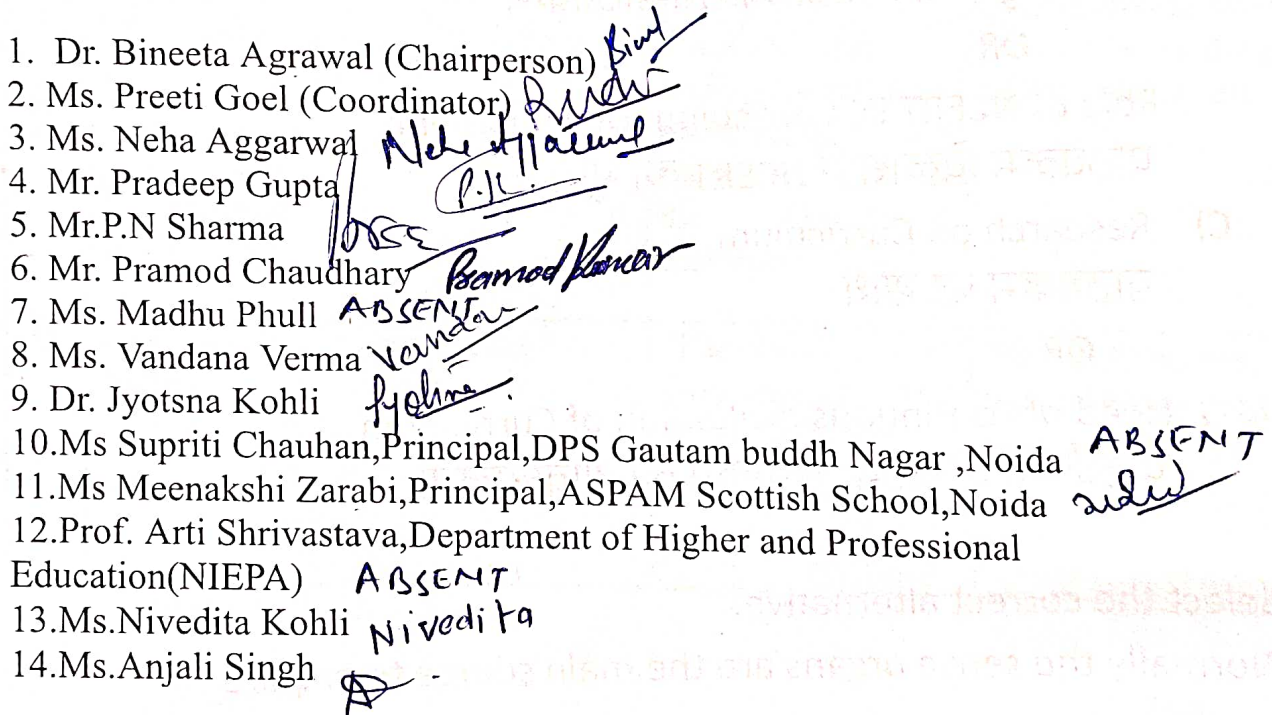 1. Dr. Bineeta Agrawal (Chairperson)
2. Ms. Preeti Goel (Coordinator)
3. Ms. Neha Aggarwal Neha Aggarwal
4. Mr. Pradeep Gupta P.K.
5. Mr.P.N Sharma
6. Mr. Pramod Chaudhary Pramod Kumar
7. Ms. Madhu Phull ABSENT
8. Ms. Vandana Verma Vandana
9. Dr. Jyotsna Kohli Jyotsna
10.Ms Supriti Chauhan,Principal,DPS Gautam buddh Nagar ,Noida ABSENT
11.Ms Meenakshi Zarabi,Principal,ASPAM Scottish School,Noida
12.Prof. Arti Shrivastava,Department of Higher and Professional
Education(NIEPA) ABSENT
13.Ms.Nivedita Kohli Nivedita
14.Ms.Anjali Singh